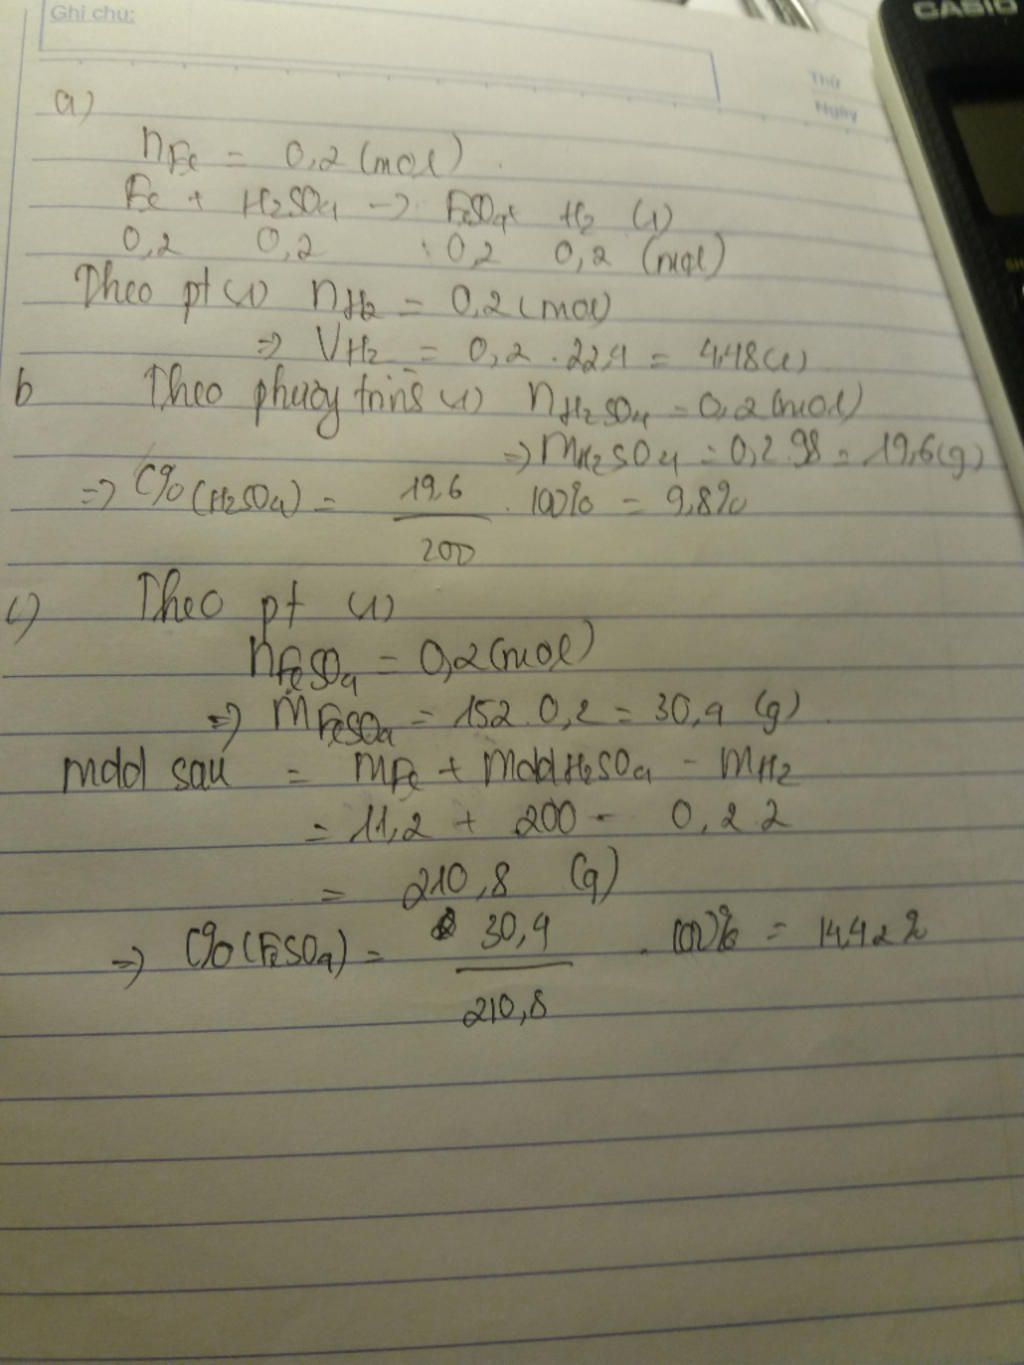 Ghi chú:
CASIO
Thứ
Ngày
a)
nFe = 0,2 (mol).
Fe + H2SO4 -> FeSO4+ H2 (1)
0,2 0,2 0,2 0,2 (mol)
Theo pt (1) nH2 = 0,2 (mol)
=> VH2 = 0,2 . 22,4 = 4,48(l)
b Theo phương trình (1) nH2SO4 = 0,2(mol)
=> mH2SO4 = 0,2.98 = 19,6(g)
=> C%(H2SO4) = 19,6 . 100% = 9,8%
200
c) Theo pt (1)
nFeSO4 = 0,2(mol)
=> mFeSO4 = 152.0,2 = 30,4 (g)
mdd sau = mFe + mddH2SO4 - mH2
= 11,2 + 200 - 0,2.2
= 210,8 (g)
=> C%(FeSO4) = 30,4 . 100% = 14,42%
210,8